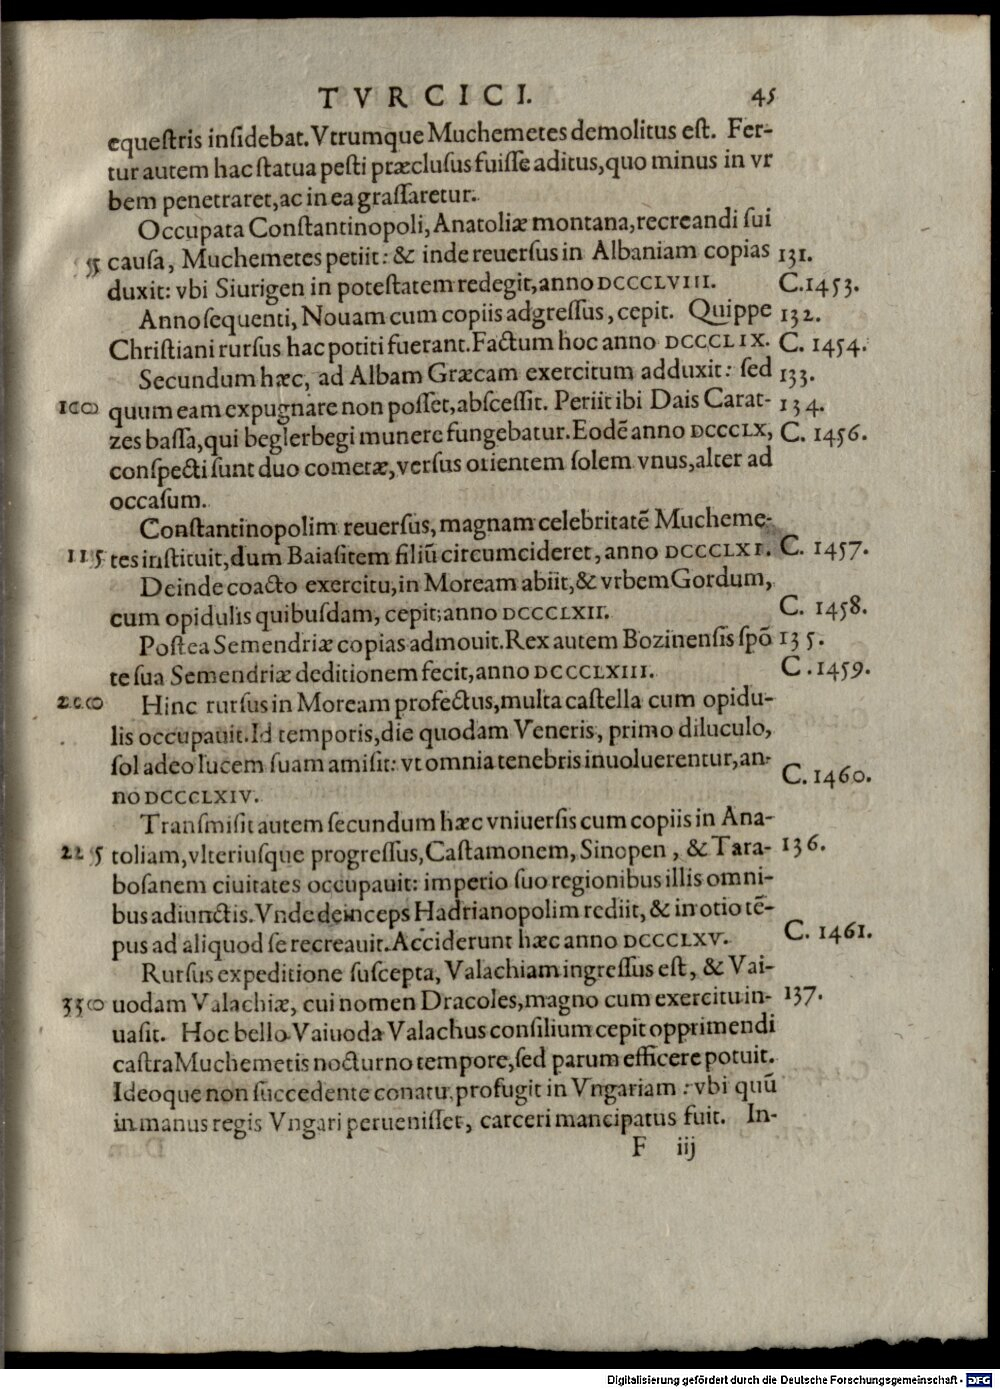 TVRCICI. 45
equeſtris inſidebat. Vtrumque Muchemetes demolitus eſt. Fer-
tur autem hac ſtatua peſti præcluſus fuiſſe aditus, quo minus in vr
bem penetraret, ac in ea graſſaretur.
Occupata Conſtantinopoli, Anatoliæ montana, recreandi ſui
5 cauſa, Muchemetes petiit: & inde reuerſus in Albaniam copias 131.
duxit: vbi Siurigen in poteſtatem redegit, anno DCCCLVIII. C. 1453.
Anno ſequenti, Nouam cum copiis adgreſſus, cepit. Quippe 132.
Chriſtiani rurſus hac potiti fuerant. Factum hoc anno DCCCLIX. C. 1454.
Secundum hæc, ad Albam Græcam exercitum adduxit: ſed 133.
10 quum eam expugnare non poſſet, abſceſſit. Periit ibi Dais Carat- 134.
zes baſſa, qui beglerbegi munere fungebatur. Eodē anno DCCCLX, C. 1456.
conſpecti ſunt duo cometæ, verſus orientem ſolem vnus, alter ad
occaſum.
Conſtantinopolim reuerſus, magnam celebritatē Mucheme-
15 tes inſtituit, dum Baiaſitem filiū circumcideret, anno DCCCLXI. C. 1457.
Deinde coacto exercitu, in Moream abiit, & vrbem Gordum,
cum opidulis quibuſdam, cepit, anno DCCCLXII. C. 1458.
Poſtea Semendriæ copias admouit. Rex autem Bozinenſis ſpō 135.
te ſua Semendriæ deditionem fecit, anno DCCCLXIII. C. 1459.
20 Hinc rurſus in Moream profectus, multa caſtella cum opidu-
lis occupauit. Id temporis, die quodam Veneris, primo diluculo,
ſol adeo lucem ſuam amiſit: vt omnia tenebris inuoluerentur, an-
no DCCCLXIV. C. 1460.
Tranſmiſit autem ſecundum hæc vniuerſis cum copiis in Ana-
25 toliam, vlteriuſque progreſſus, Caſtamonem, Sinopen, & Tara- 136.
boſanem ciuitates occupauit: imperio ſuo regionibus illis omni-
bus adiunctis. Vnde deinceps Hadrianopolim rediit, & in otio tē-
pus ad aliquod ſe recreauit. Acciderunt hæc anno DCCCLXV. C. 1461.
Rurſus expeditione ſuſcepta, Valachiam ingreſſus eſt, & Vai-
30 uodam Valachiæ, cui nomen Dracoles, magno cum exercitu in- 137.
uaſit. Hoc bello Vaiuoda Valachus conſilium cepit opprimendi
caſtra Muchemetis nocturno tempore, ſed parum efficere potuit.
Ideoque non ſuccedente conatu, profugit in Vngariam: vbi quū
in manus regis Vngari perueniſſet, carceri mancipatus fuit. In-
F iij
Digitalisierung gefördert durch die Deutsche Forschungsgemeinschaft - DFG